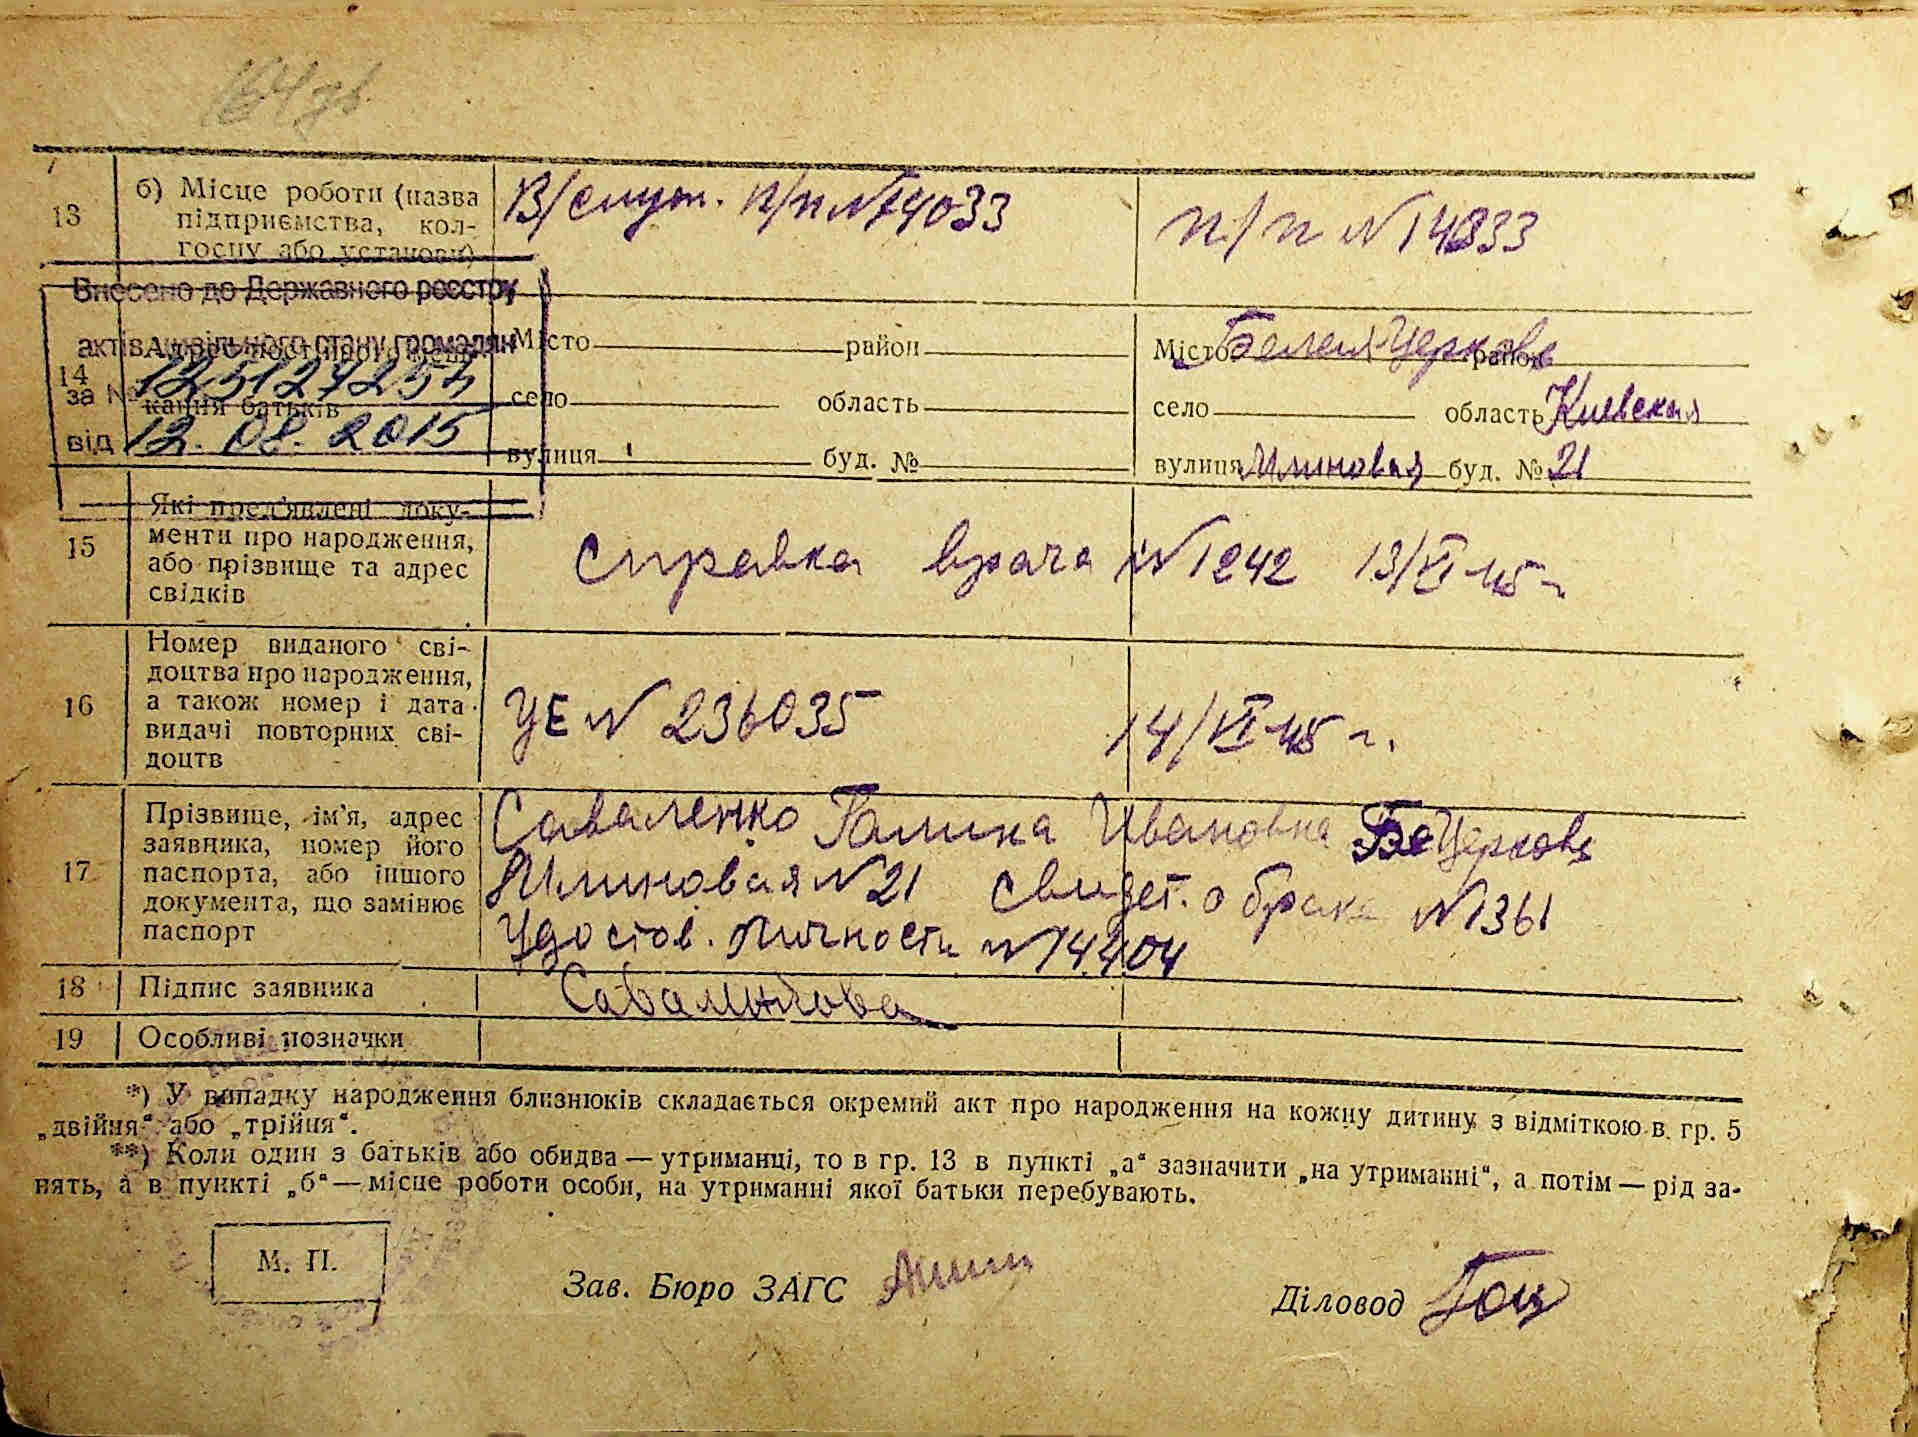 13
б) Місце роботи (назва
підприємства, кол-
госпу або установи)
В/служ. п/п №74033
п/п №14833
Внесено до Державного реєстру
актів цивільного стану громадян
за №
від 12.08.2015
14
Адрес постійного меш-
кання батьків
Місто район
село область
вулиця буд. №
Місто Белая Церковь район
село область Киевская
вулиця буд. № 21
15
Які пред'явлені доку-
менти про народження,
або прізвище та адрес
свідків
Справка врача №1242 13/VI-45 г.
16
Номер виданого сві-
доцтва про народження,
а також номер і дата
видачі повторних сві-
доцтв
УЕ № 236035 14/VI-45 г.
17
Прізвище, ім'я, адрес
заявника, номер його
паспорта, або іншого
документа, що замінює
паспорт
Саваленко Галина Ивановна Церковь
№21 свидет. о браке №1361
Удостов. личности №14404
18 Підпис заявника
19 Особливі позначки
*) У випадку народження близнюків складається окремий акт про народження на кожну дитину з відміткою в гр. 5
„двійня“ або „трійня“.
**) Коли один з батьків або обидва — утриманці, то в гр. 13 в пункті „а“ зазначити „на утриманні“, а потім — рід за-
нять, а в пункті „б“ — місце роботи особи, на утриманні якої батьки перебувають.
М. П.
Зав. Бюро ЗАГС
Діловод Гоц